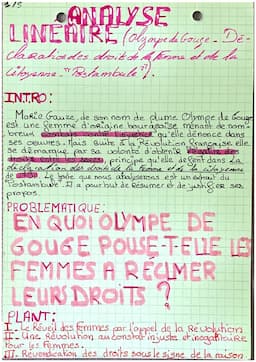 ANALYSE
LINEAIRE (Olympe de Gouge - Dé-
claration des droits de la femme et de la
citoyenne "Postambule").
INTRO:
Marie Gouze, de son nom de plume Olympe de Gouge
est une femme d'origine bourgeoise menant de nom-
breux qu'elle dénonce dans
ses oeuvres. Mais suite à la Révolution Française elle
se dé par sa volonté d'obtenir
principe qu'elle défend dans La
déclaration des droits de la femme et de la citoyenne
de Le texte que nous analysons est un extrait du
Postambule. Il a pour but de résumer et de justifier ses
propos.
PROBLEMATIQUE:
EN QUOI OLYMPE DE
GOUGE POUSE-T-ELLE LES
FEMMES A RÉCLMER
LEURS DROITS ?
PLANT:
I. Le Réveil des femmes par l'appel de la Révolution
II. Une Révolution au constat injuste et inégalitaire
pour les femmes.
III. Revendication des droits sous le signe de la raison